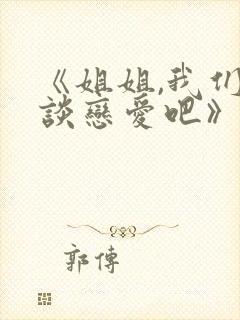 《姐姐,我们
談戀愛吧》
郭傳